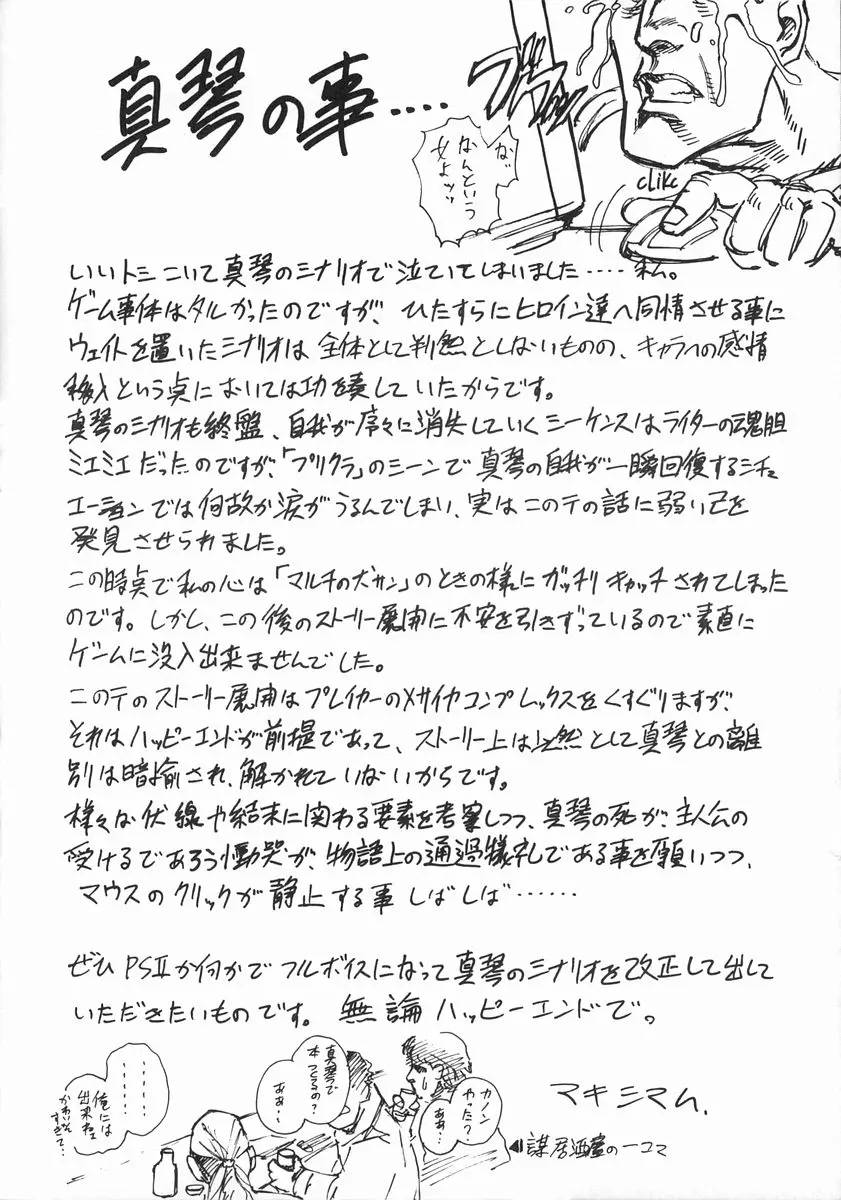 真琴の事‥‥
ブルブル
なぜ
なんという
女よッッ
cLikc
いいトシこいて真琴のシナリオで泣ていてしまいました‥‥‥私。
ゲーム事体はタルかったのですが、ひたすらにヒロイン達へ同情させる事に
ウェイトを置いたシナリオは全体として判然としないものの、キャラへの感情
移入という点においては功を奏していたからです。
真琴のシナリオも終盤、自我が序々に消失していくシーケンスはライターの魂胆
ミエミエだったのですが、「プリクラ」のシーンで真琴の自我が一瞬回復するシチュ
エーションでは何故か涙がうるんでしまい、実はこのテの話に弱い己を
発見させられました。
この時点で私の心は「マルチの犬サン」のときの様にガッチリキャッチされてしまった
のです。しかし、この後のストーリー展開に不安を引きずっているので素直に
ゲームに没入出来ませんでした。
このテのストーリー展開はプレイヤーのメサイヤコンプレックスをくすぐりますが、
それはハッピーエンドが前提であって、ストーリー上は必然として真琴との離
別は暗揄され、解かれていないからです。
様々な伏線や結末に関わる要素を考察しつつ、真琴の死が、主人公の
受けるであろう慟哭が、物語上の通過儀礼である事を願いつつ、
マウスのクリックが静止する事しばしば‥‥‥
ぜひPSⅡか何かでフルボイスになって真琴のシナリオを改正して出して
いただきたいものです。無論ハッピーエンドで。
マキシマム.
カノン
やった?
ああ…
真琴で
本つくるの?
ああ…
‥‥‥
俺には
出来ねェ
かわいそ
すぎて…
◀謀居酒屋の一コマ